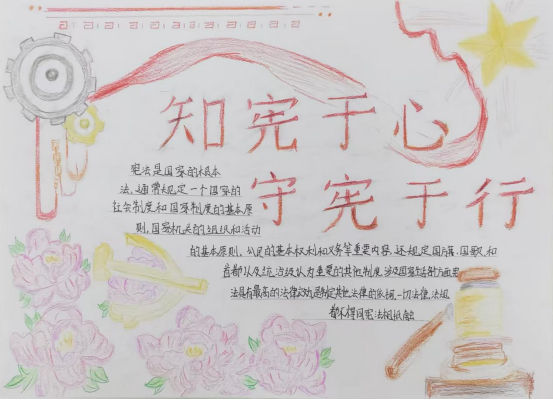 知宪于心
守宪于行
宪法是国家的根本
法,通常规定一个国家的
社会制度和国家制度的基本原
则,国家机关的组织和活动
的基本原则,公民的基本权利和义务等重要内容,还规定国旗、国歌、和
首都以及统治阶级认为重要的其他制度,涉及国家生活各方面
法具有最高的法律效力是制定其他法律的依据,一切法律,法规
都不得同宪法相抵触